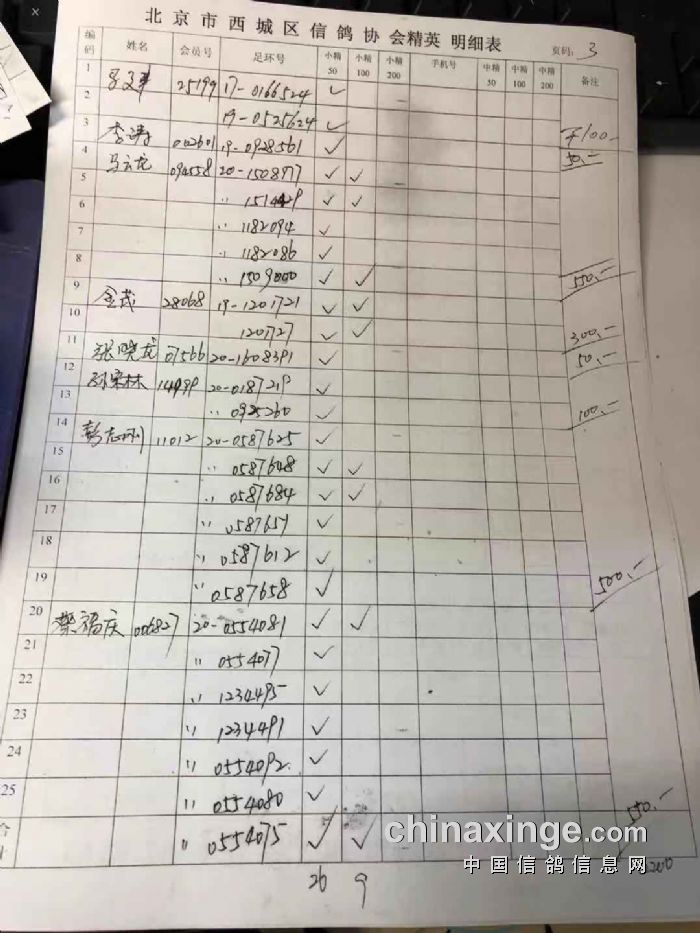 北京市西城区信鸽协会精英 明细表
页码: 3
编码 姓名 会员号 足环号 小精50 小精100 小精200 手机号 中精50 中精100 中精200 备注
1 25199 17-0166524 ✓
2 19-0525624 ✓ 100.-
3 李涛 002601 19-0928561 ✓ 50.-
4 马云龙 094558 20-1508977 ✓ ✓
5 〃 1514429 ✓ ✓
6 〃 1182094 ✓
7 〃 1182086 ✓
8 〃 1509000 ✓ ✓ 550.-
9 金茂 28068 19-1201721 ✓ ✓
10 1201727 ✓ ✓ 300.-
11 张晓龙 07566 20-1608391 ✓ 50.-
12 孙宝林 14999 20-0187219 ✓
13 〃 0925260 ✓ 100.-
14 彭志刚 11012 20-0587625 ✓
15 〃 0587648 ✓ ✓
16 〃 0587684 ✓ ✓
17 〃 0587651 ✓
18 〃 0587612 ✓
19 〃 0587658 ✓ 500.-
20 梁福庆 006827 20-0554081 ✓ ✓
21 〃 0554077 ✓
22 〃 1234495 ✓
23 〃 1234491 ✓
24 〃 0554092 ✓
25 〃 0554080 ✓
合计 〃 0554075 ✓ ✓ 550.-
26 9
chinaxinge.com
中国信鸽信息网